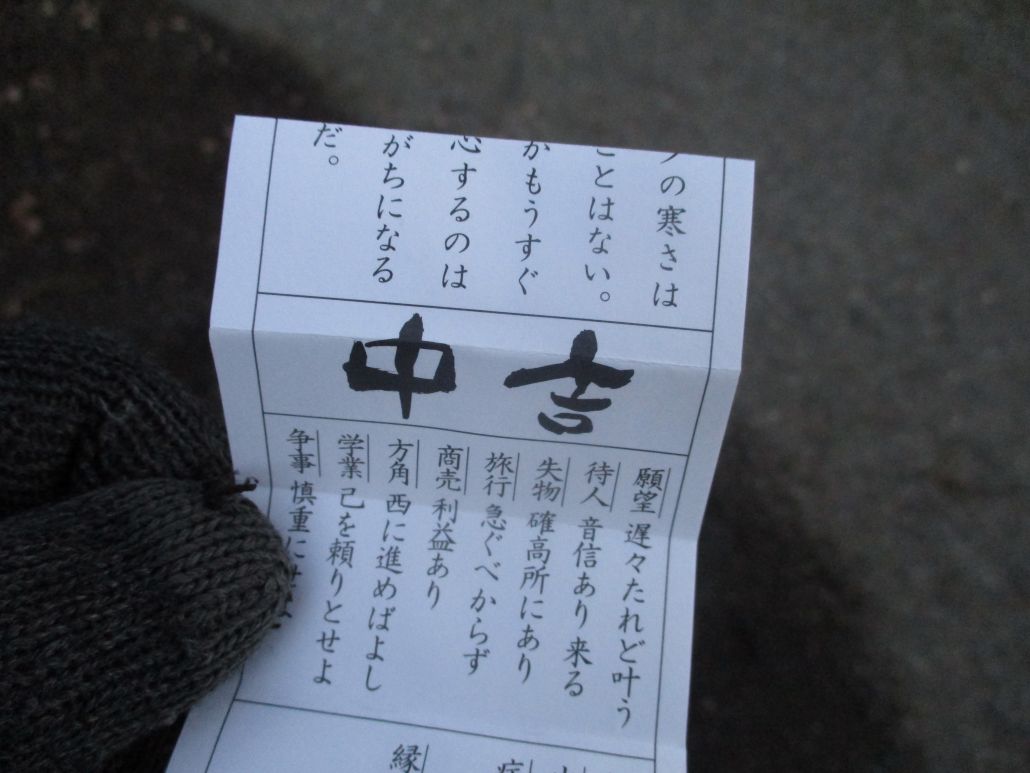 の寒さは
ことはない。
かもうすぐ
心するのは
がちになる
だ。
中吉
願望 遅々たれど叶う
待人 音信あり 来る
失物 確高所にあり
旅行 急ぐべからず
商売 利益あり
方角 西に進めばよし
学業 己を頼りとせよ
争事 慎重にせよ
縁